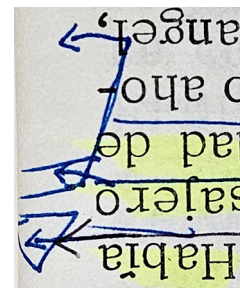 Había
sajero
ad de
o aho-
angel,